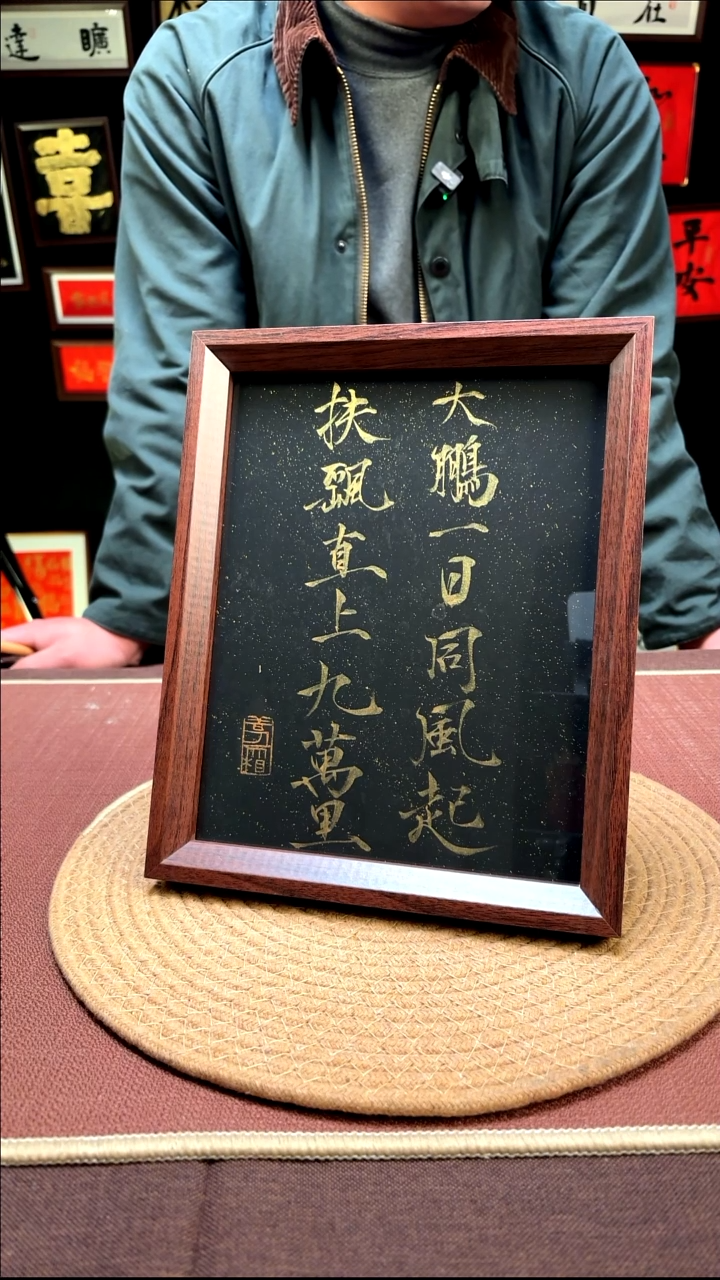 大鵬一日同風起
扶飄直上九萬里
曠達
喜
早安